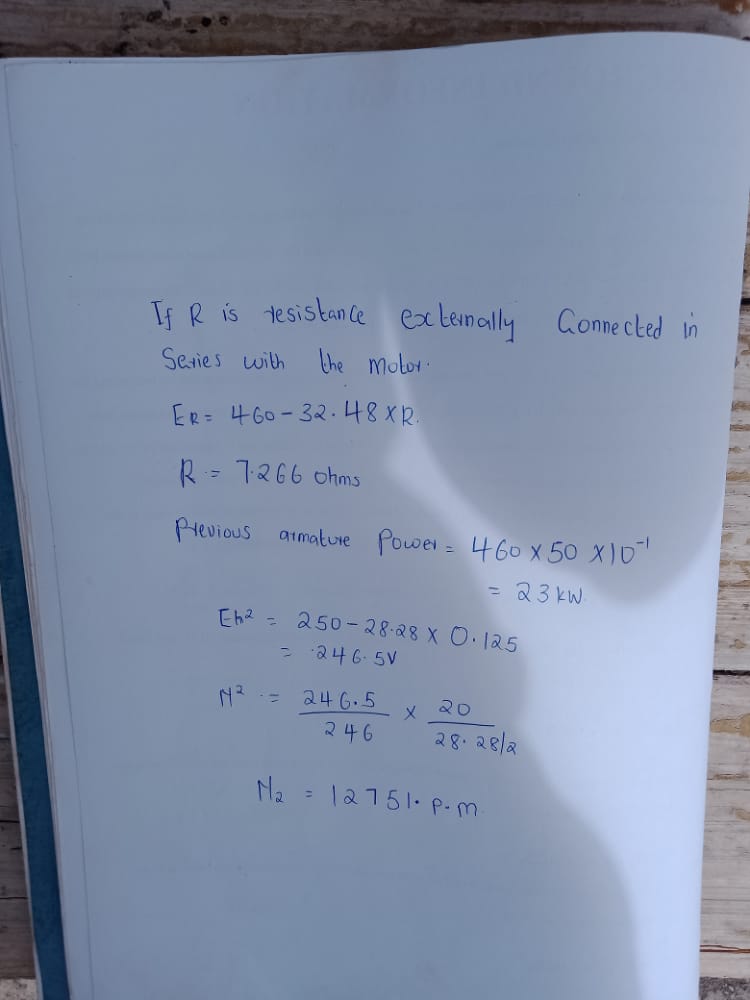 If R is resistance externally Connected in
Series with the motor.
ER = 460 - 32.48 X R.
R = 7.266 ohms
Previous armature Power = 460 X 50 X 10⁻¹
= 23 kW.
Eh² = 250 - 28.28 X 0.125
= 246.5V
N² = 246.5/246 X 20/28.28/2
N₂ = 12751. p.m